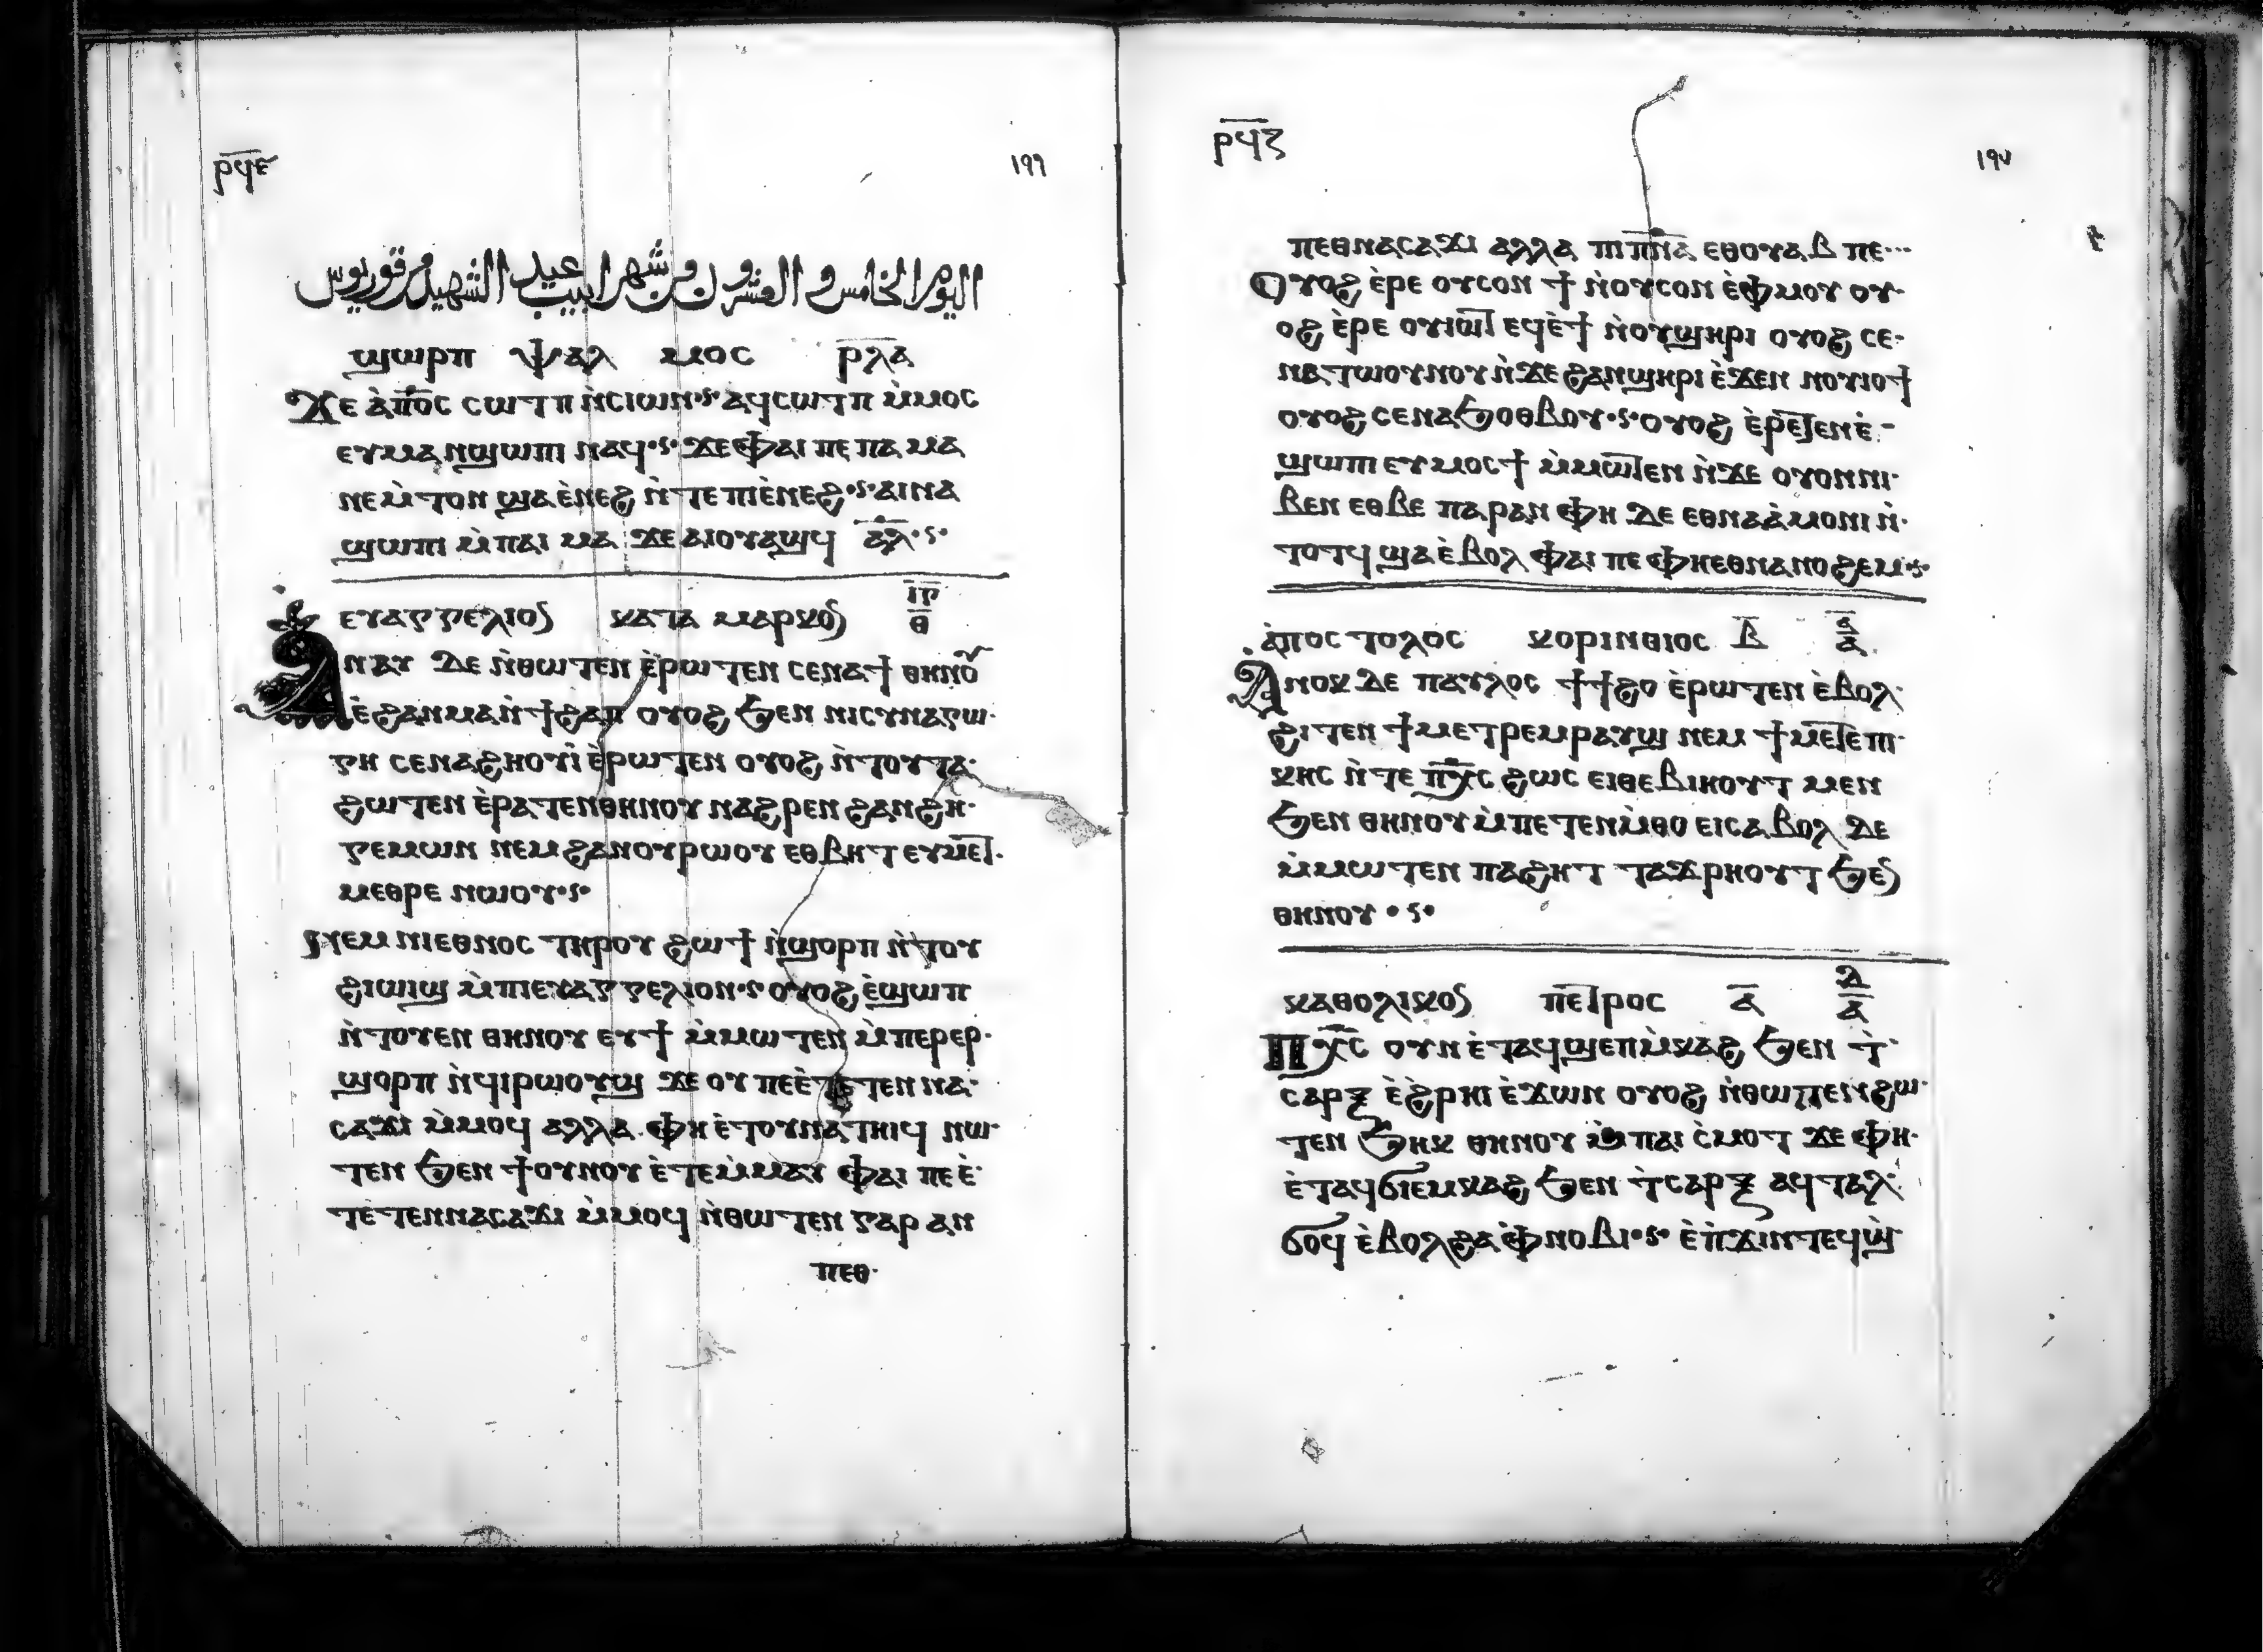 ⲣϥⲉ ١٩٦
اليوم الخامس والعشرون من شهر ابيب عيد الشهيد مرقوريوس
ϣⲱⲣⲡ ⲯⲁⲗ ⲙⲟⲥ ⲣ̅ⲗ̅ⲁ̅
ϫⲉ ⲁ̀ⲡ⳪ ⲥⲱⲧⲡ ⲛ̀ⲥⲓⲱⲛ·ⲋ· ⲁϥⲥⲱⲧⲡ ⲙ̀ⲙⲟⲥ
ⲉⲩⲙⲁⲛϣⲱⲡⲓ ⲛⲁϥ·ⲋ· ϫⲉ ⲫⲁⲓ ⲡⲉ ⲡⲁ ⲙⲁ
ⲛⲉⲙ̀ⲧⲟⲛ ϣⲁⲉ̀ⲛⲉϩ ⲛ̀ⲧⲉ ⲡⲓⲉ̀ⲛⲉϩ·ⲋ· ⲁⲓⲛⲁ
ϣⲱⲡⲓ ⲙ̀ⲡⲁⲓ ⲙⲁ ϫⲉ ⲁⲓⲟⲩⲁϣϥ ⲁ̅ⲗ̅·ⲋ·
ⲉⲩⲁⲅⲅⲉⲗⲓⲟⲛ ⲕⲁⲧⲁ ⲙⲁⲣⲕⲟⲛ ⲓ̅ⲅ̅ ⲑ̅
ⲁⲛⲁⲩ ⲇⲉ ⲛ̀ⲑⲱⲧⲉⲛ ⲉ̀ⲣⲱⲧⲉⲛ ⲥⲉⲛⲁϯ ⲑⲏⲛⲟⲩ
ⲉ̀ϩⲁⲛⲙⲁⲛ̀ϯϩⲁⲡ ⲟⲩⲟϩ ϧⲉⲛ ⲛⲓⲥⲩⲛⲁⲅⲱ·
ⲅⲏ ⲥⲉⲛⲁϩⲓⲟⲩⲓ̀ ⲉ̀ⲣⲱⲧⲉⲛ ⲟⲩⲟϩ ⲛ̀ⲧⲟⲩⲧⲁ·
ϩⲱⲧⲉⲛ ⲉ̀ⲣⲁⲧⲉⲛⲑⲏⲛⲟⲩ ⲛⲁϩⲣⲉⲛ ϩⲁⲛϩⲏ·
ⲅⲉⲙⲱⲛ ⲛⲉⲙ ϩⲁⲛⲟⲩⲣⲱⲟⲩ ⲉⲑⲃⲏⲧ ⲉⲩⲙⲉⲧ·
ⲙⲉⲑⲣⲉ ⲛⲱⲟⲩ·ⲋ·
ⲛⲉⲙ ⲛⲓⲉⲑⲛⲟⲥ ⲧⲏⲣⲟⲩ ϩⲱϯ ⲛ̀ϣⲟⲣⲡ ⲛ̀ⲧⲟⲩ
ϩⲓⲱⲓϣ ⲙ̀ⲡⲓⲉⲩⲁⲅⲅⲉⲗⲓⲟⲛ·ⲋ ⲟⲩⲟϩ ⲉ̀ϣⲱⲡ
ⲛ̀ⲧⲟⲩⲉⲛ ⲑⲏⲛⲟⲩ ⲉⲩϯ ⲙ̀ⲙⲱⲧⲉⲛ ⲙ̀ⲡⲉⲣⲉⲣ·
ϣⲟⲣⲡ ⲛ̀ϥⲓⲣⲱⲟⲩϣ ϫⲉ ⲟⲩ ⲡⲉⲉ̀ⲧⲉⲧⲉⲛⲛⲁ·
ⲥⲁϫⲓ ⲙ̀ⲙⲟϥ ⲁⲗⲗⲁ ⲫⲏ ⲉ̀ⲧⲟⲩⲛⲁⲧⲏⲓϥ ⲛⲱ·
ⲧⲉⲛ ϧⲉⲛ ϯⲟⲩⲛⲟⲩ ⲉ̀ⲧⲉⲙ̀ⲙⲁⲩ ⲫⲁⲓ ⲡⲉ ⲉ̀·
ⲧⲉⲧⲉⲛⲛⲁⲥⲁϫⲓ ⲙ̀ⲙⲟϥ ⲛ̀ⲑⲱⲧⲉⲛ ⲅⲁⲣ ⲁⲛ
ⲡⲉⲑ·
ⲣϥⲍ ١٩٧
ⲡⲉⲑⲛⲁⲥⲁϫⲓ ⲁⲗⲗⲁ ⲡⲓⲡ̅ⲛ̅ⲁ̅ ⲉⲑⲟⲩⲁⲃ ⲡⲉ···
ⲟⲩⲟϩ ⲉ̀ⲣⲉ ⲟⲩⲥⲟⲛ ϯ ⲛ̀ⲟⲩⲥⲟⲛ ⲉ̀ⲫⲙⲟⲩ ⲟⲩ·
ⲟϩ ⲉ̀ⲣⲉ ⲟⲩⲓⲱⲧ ⲉϥⲉ̀ϯ ⲛ̀ⲟⲩϣⲏⲣⲓ ⲟⲩⲟϩ ⲥⲉ·
ⲛⲁⲧⲱⲟⲩⲛⲟⲩ ⲛ̀ϫⲉ ϩⲁⲛϣⲏⲣⲓ ⲉ̀ϫⲉⲛ ⲛⲟⲩⲓⲟϯ
ⲟⲩⲟϩ ⲥⲉⲛⲁϧⲟⲑⲃⲟⲩ·ⲋ· ⲟⲩⲟϩ ⲉ̀ⲣⲉⲧⲉⲛⲉ̀·
ϣⲱⲡⲓ ⲉⲩⲙⲟⲥϯ ⲙ̀ⲙⲱⲧⲉⲛ ⲛ̀ϫⲉ ⲟⲩⲟⲛⲛⲓ·
ⲃⲉⲛ ⲉⲑⲃⲉ ⲡⲁⲣⲁⲛ ⲫⲏ ⲇⲉ ⲉⲑⲛⲁⲁ̀ⲙⲟⲛⲓ ⲛ̀·
ⲧⲟⲧϥ ϣⲁⲉ̀ⲃⲟⲗ ⲫⲁⲓ ⲡⲉ ⲫⲏⲉⲑⲛⲁⲛⲟϩⲉⲙ·ⲋ·
ⲁ̀ⲡⲟⲥⲧⲟⲗⲟⲥ ⲕⲟⲣⲓⲛⲑⲓⲟⲥ ⲃ̅
ⲁⲛⲟⲕ ⲇⲉ ⲡⲁⲩⲗⲟⲥ ϯϯϩⲟ ⲉ̀ⲣⲱⲧⲉⲛ ⲉ̀ⲃⲟⲗ·
ϩⲓⲧⲉⲛ ϯⲙⲉⲧⲣⲉⲙⲣⲁⲩϣ ⲛⲉⲙ ϯⲙⲉⲧⲉⲡⲓ·
ⲕⲏⲥ ⲛ̀ⲧⲉ ⲡⲭ̅ⲥ ϩⲱⲥ ⲉⲓⲑⲉⲃⲓⲏⲟⲩⲧ ⲙⲉⲛ
ϧⲉⲛ ⲑⲏⲛⲟⲩ ⲙ̀ⲡⲉⲧⲉⲛⲙ̀ⲑⲟ ⲉⲓⲥⲁⲃⲟⲗ ⲇⲉ
ⲙ̀ⲙⲱⲧⲉⲛ ⲡⲁϩⲏⲧ ⲧⲁϫⲣⲏⲟⲩⲧ ϧⲉⲛ
ⲑⲏⲛⲟⲩ·ⲋ·
ⲕⲁⲑⲟⲗⲓⲕⲟⲛ ⲡⲉⲧⲣⲟⲥ ⲁ̅ ⲇ̅ ⲁ̅
ⲡⲭ̅ⲥ ⲟⲩⲛ ⲉ̀ⲧⲁϥϣⲉⲡⲙ̀ⲕⲁϩ ϧⲉⲛ ⲧ̀·
ⲥⲁⲣⲝ ⲉ̀ϩ̀ⲣⲏⲓ ⲉ̀ϫⲱⲛ ⲟⲩⲟϩ ⲛ̀ⲑⲱⲧⲉⲛ ϩⲱ·
ⲧⲉⲛ ϧⲏⲕ ⲑⲏⲛⲟⲩ ⲙ̀ⲡⲁⲓ ⲥ̀ⲙⲟⲧ ϫⲉ ⲫⲏ·
ⲉ̀ⲧⲁϥϭⲓⲉⲙⲕⲁϩ ϧⲉⲛ ⲧ̀ⲥⲁⲣⲝ ⲁϥⲧⲁⲗ·
ϭⲟϥ ⲉ̀ⲃⲟⲗϩⲁ ⲫ̀ⲛⲟⲃⲓ·ⲋ· ⲉ̀ⲡϫⲓⲛⲧⲉϥϣ̀